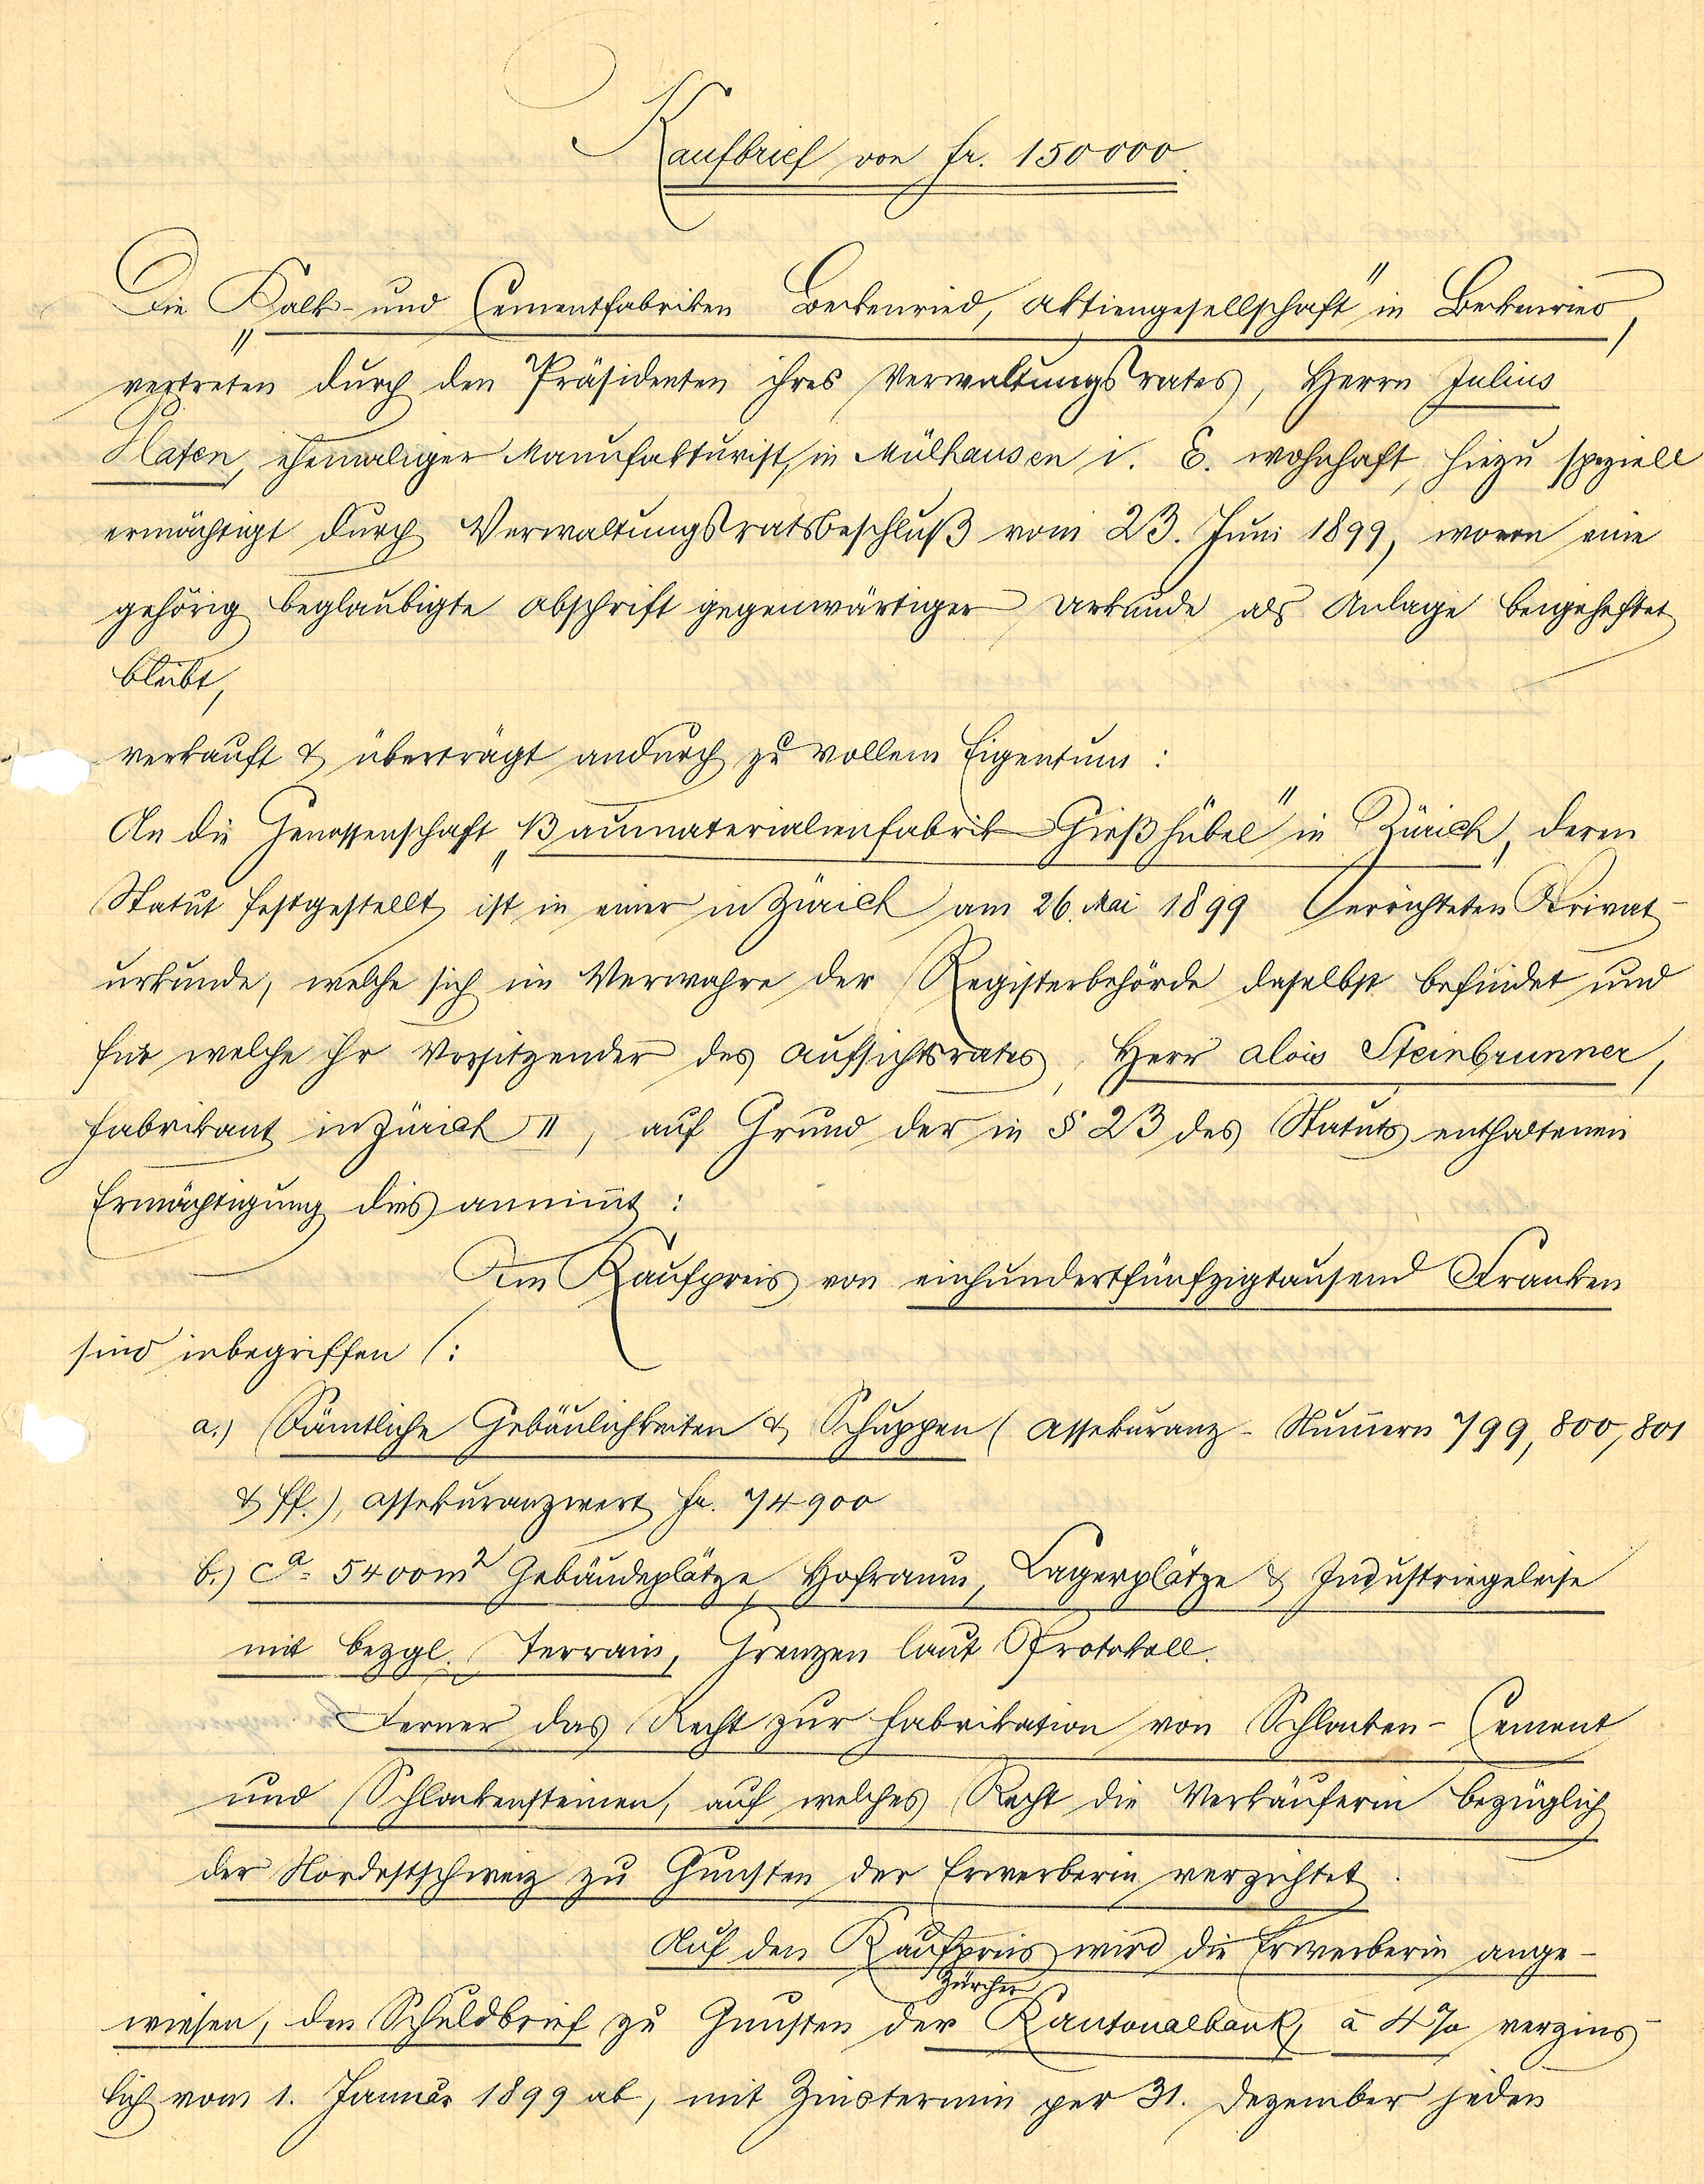 Kaufbrief von fr. 150000.
Die „Kalk- und Cementfabriken Beckenried, Aktiengesellschaft" in Beckenried,
vertreten durch den Präsidenten ihres Verwaltungsrates, Herrn Julius
Platen, ehemaliger Manufakturist, in Mülhausen i. E. wohnhaft, hiezu speziell
ermächtigt durch Verwaltungsratsbeschluß vom 23. Juni 1899, wovon eine
gehörig beglaubigte Abschrift gegenwärtiger Urkunde als Anlage beigeheftet
bleibt,
verkauft & überträgt andurch zu vollem Eigentum:
An die Genossenschaft „Baumaterialienfabrik Gießhübel" in Zürich, deren
Statut festgestellt ist in einer in Zürich am 26. Mai 1899 errichteten Privat-
urkunde, welche sich im Verwahre der Registerbehörde daselbst befindet und
für welche ihr Vorsitzender des Aufsichtsrates, Herr Alois Steinbrunner,
Fabrikant in Zürich II, auf Grund der in § 23 des Statuts enthaltenen
Ermächtigung dies annim̄t:
Im Kaufpreis von einhundertfünfzigtausend Franken
sind inbegriffen:
a.) Sämtliche Gebäulichkeiten & Schuppen (Assekuranz-Num̄ern 799, 800, 801
& ff.), Assekuranzwert fr. 74900
b.) ca. 5400m² Gebäudeplätze, Hofraum, Lagerplätze & Industriegeleise
mit bezgl. Terrain, Grenzen laut Protokoll.
Ferner das Recht zur Fabrikation von Schlacken-Cement
und Schlackensteinen, auf welches Recht die Verkäuferin bezüglich
der Nordostschweiz zu Gunsten der Erwerberin verzichtet.
Auf den Kaufpreis wird die Erwerberin ange-
wiesen, den Schuldbrief zu Gunsten der Zürcher Kantonalbank, à 4% verzins-
lich vom 1. Januar 1899 ab, mit Zinstermin per 31. Dezember jeden